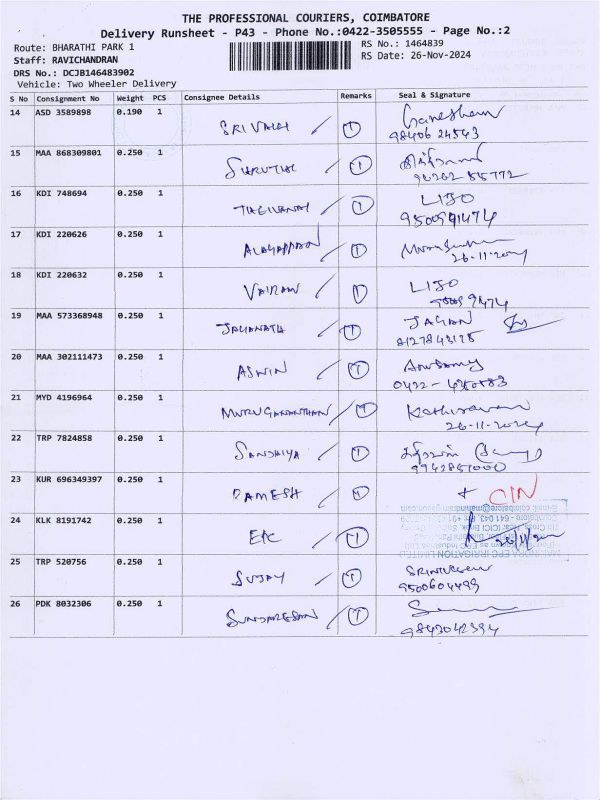 THE PROFESSIONAL COURIERS, COIMBATORE
Delivery Runsheet - P43 - Phone No.:0422-3505555 - Page No.:2
Route: BHARATHI PARK 1
RS No.: 1464839
Staff: RAVICHANDRAN
RS Date: 26-Nov-2024
DRS No.: DCJB146483902
Vehicle: Two Wheeler Delivery
S No Consignment No Weight PCS Consignee Details Remarks Seal & Signature
14 ASD 3589898 0.190 1 SRIVALLI 1 Ganesham
9840624543
15 MAA 868309801 0.250 1 SHRUTHI 1
16 KDI 748694 0.250 1 1 LIJO
17 KDI 220626 0.250 1 ALAGAPPAN 1
26-11-2024
18 KDI 220632 0.250 1 VAIRAM 1 LIJO
19 MAA 573368948 0.250 1 JAGANATH 1 JAGAN
8127843175
20 MAA 302111473 0.250 1 ASWIN 1
21 MYD 4196964 0.250 1 MURUGANANTHAN 1 Kathiravan
26-11-2024
22 TRP 7824858 0.250 1 SANDHIYA 1
9942841000
23 KUR 696349397 0.250 1 RAMESH CIN
24 KLK 8191742 0.250 1 EPC 1
25 TRP 520756 0.250 1 SUJAY 1
9500604499
26 PDK 8032306 0.250 1 SUNDARESAN 1
9843042394